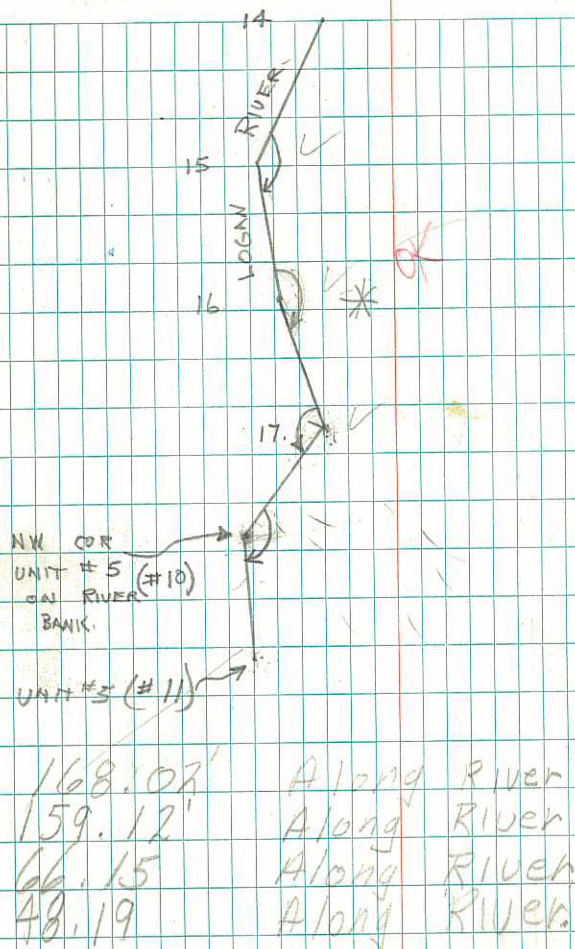 14
RIVER
15
LOGAN
OK
16
17.
NW COR
UNIT #5 (#10)
ON RIVER
BANK.
UNIT #5 (#11)
168.02' Along River
159.12' Along River
66.15 Along River
48.19 Along River.